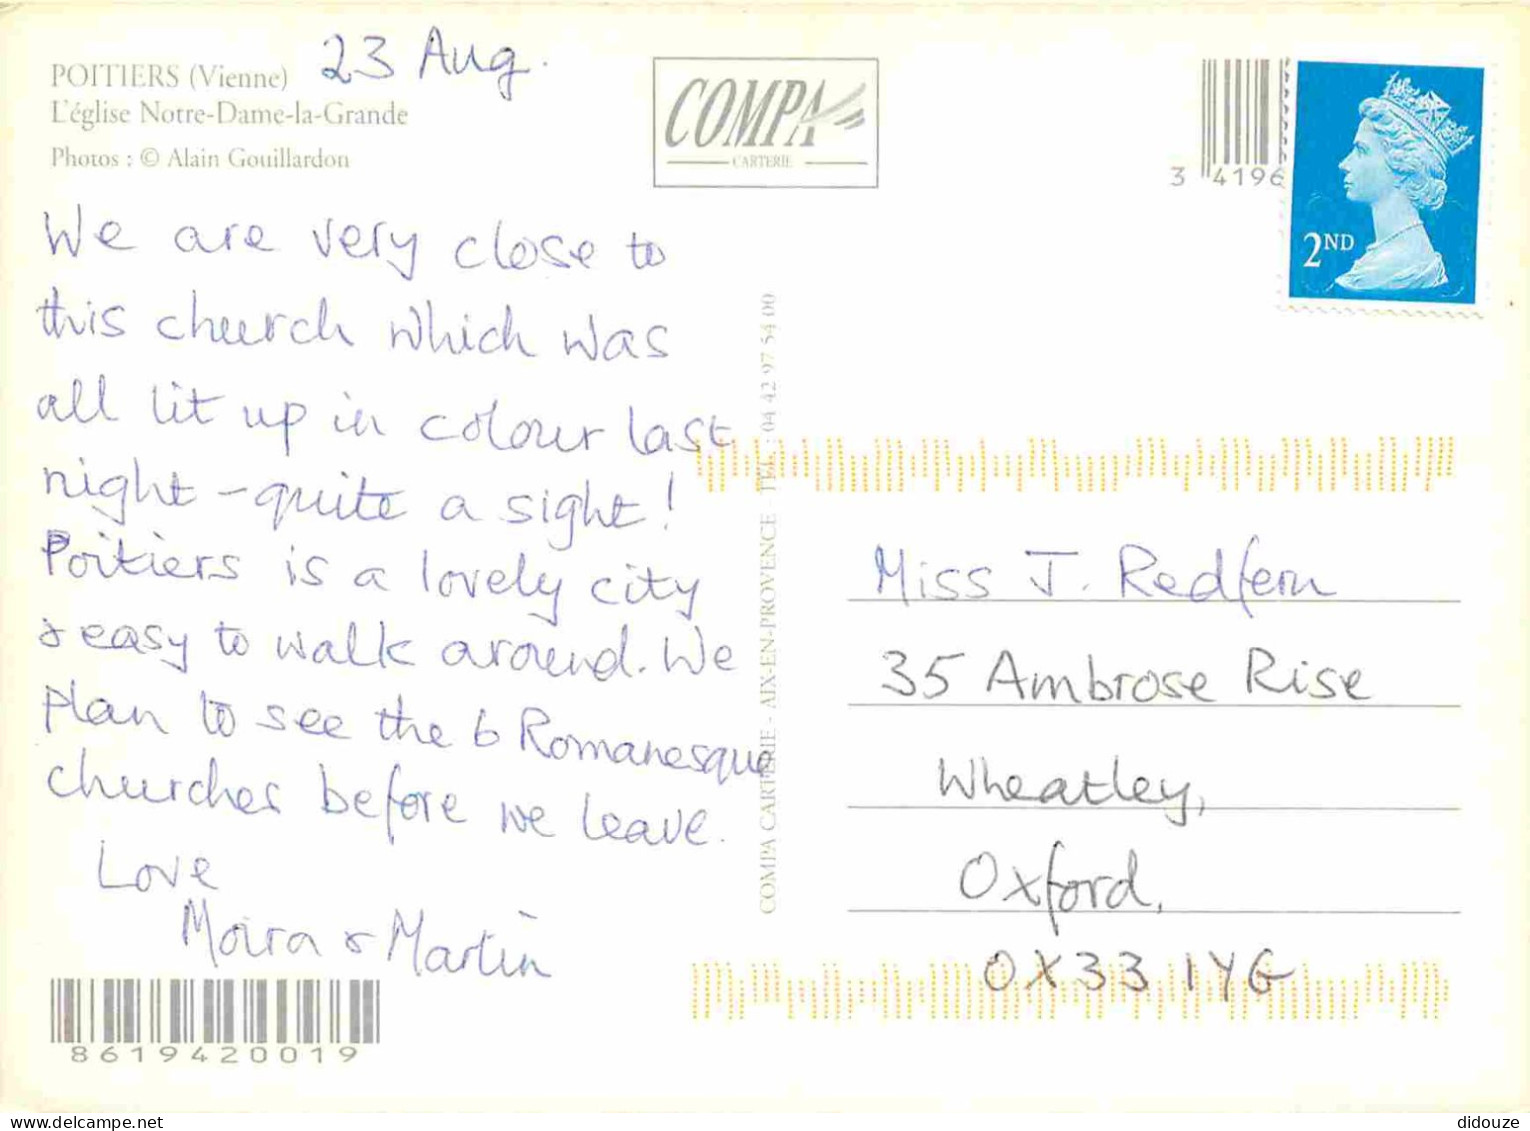 POITIERS (Vienne)
23 Aug.
L'église Notre-Dame-la-Grande
Photos : © Alain Gouillardon
COMPA
CARTERIE
3 4196
2ND
We are very close to
this church which was
all lit up in colour last
night - quite a sight!
Poitiers is a lovely city
& easy to walk around. We
plan to see the 6 Romanesque
churches before we leave.
Love
Moira & Martin
8619420019
COMPA CARTERIE - AIX-EN-PROVENCE TEL : 04 42 97 54 00
Miss J. Redfern
35 Ambrose Rise
Wheatley,
Oxford,
OX33 1YG
didouze